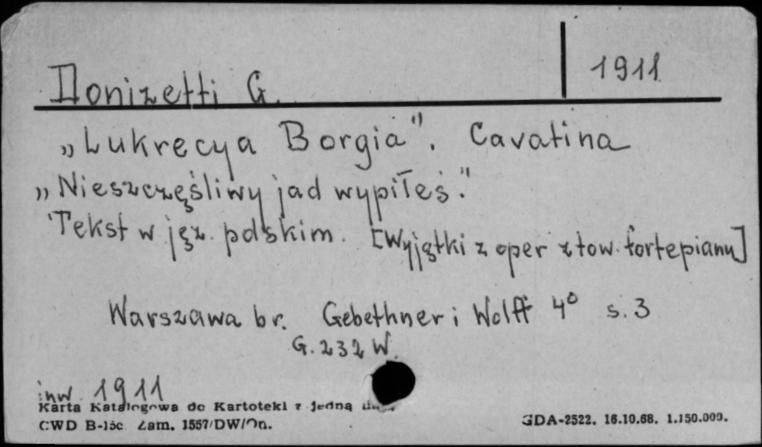 Donizetti G. 1911
„Lukrecya Borgia". Cavatina
„Nieszczęśliwy jad wypiłeś."
Tekst w jęz. polskim. [Wyjątki z oper z tow. fortepianu]
Warszawa br. Gebethner i Wolff 4° s. 3
G. 232 W.
inw. 1911
Karta Katalogowa do Kartoteki z jedną
CWD B-15c Zam. 1557/DW/On. GDA-2522. 16.10.68. 1.150.000.